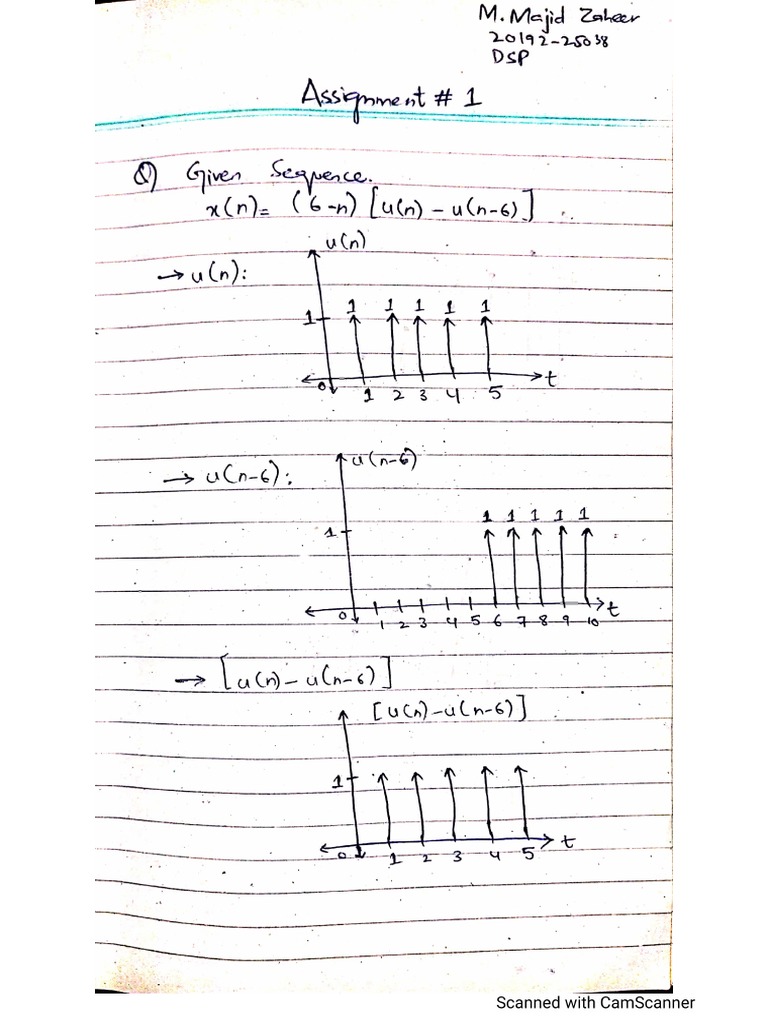 M. Majid Zaheer
20192-25038
DSP
Assignment # 1
Q) Given Sequence.
x(n) = (6-n) [u(n) - u(n-6)]
u(n)
→ u(n):
1 1 1 1 1
1
0 1 2 3 4 5 t
→ u(n-6):
u(n-6)
1 1 1 1 1
1
0 1 2 3 4 5 6 7 8 9 10 t
→ [u(n) - u(n-6)]
[u(n) - u(n-6)]
1
0 1 2 3 4 5 t
Scanned with CamScanner